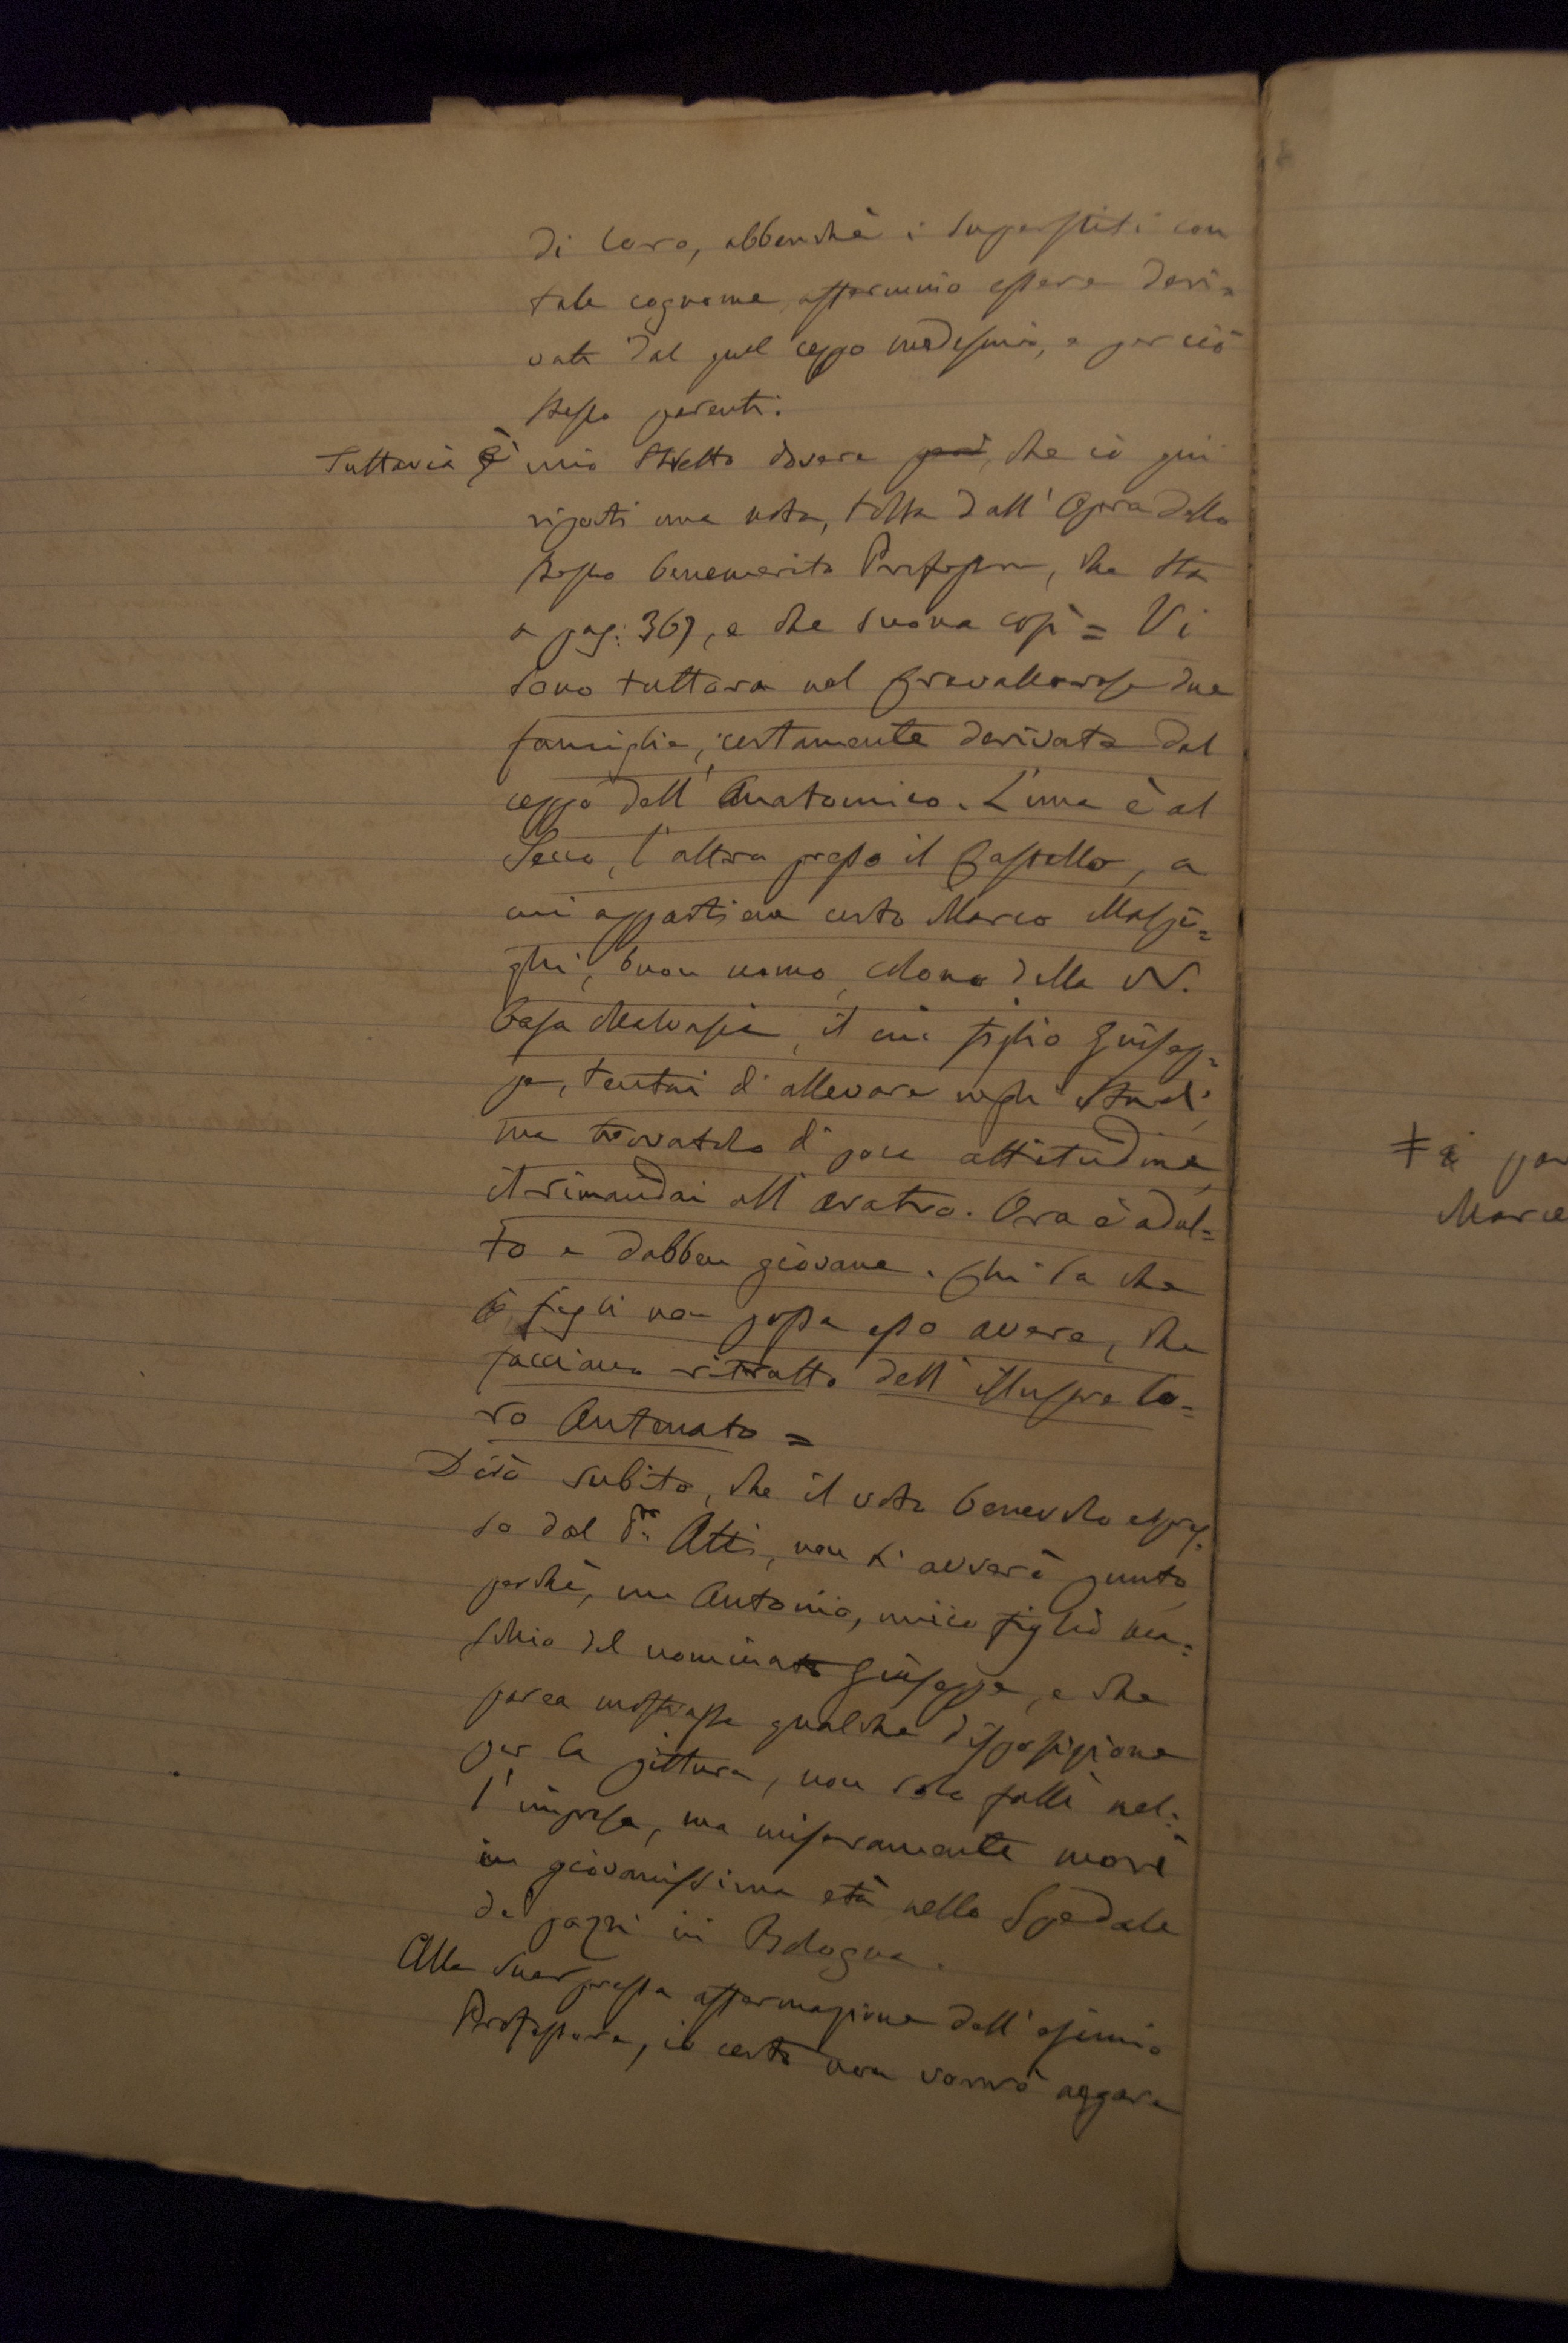 di loro, abbenchè i superstiti con
tale cognome affermino essere deri=
vati dal quel ceppo medesimo, e per ciò
stesso parenti.
Tuttavia è mio stretto dovere però, che io qui
riporti una nota, tolta dall' Opera dello
stesso benemerito Professore, che sta
a pag: 367, e che suona così = Vi
sono tuttora nel Crevalcorese due
famiglie, certamente derivate dal
ceppo dell' Anatomico. L'una è al
Secco, l'altra presso il Castello, a
cui appartiene certo Marco Malpi=
ghi, buon uomo, colono della N.
Casa Malvasia, il cui figlio Giusep=
pe, tentai di allevare negli studi,
ma trovatolo di poca attitudine,
il rimandai all' aratro. Ora è adul=
to e dabben giovane. Chi sa che
figli non possa esso avere, che
facciano ritratto dell' illustre lo=
ro Antenato =
Dirò subito, che il voto benevolo espres=
so dal Atti, non s' avverò punto,
perchè, un Antonio, unico figlio ma=
schio del nominato Giuseppe, e che
parea mostrasse qualche disposizione
per la pittura, non solo fallì nel=
l' impresa, ma miseramente morì
in giovanissima età nello Spedale
de' pazzi in Bologna.
Alla suespressa affermazione dell' esimio
Professore, io certo non vorrò oppore
Marce